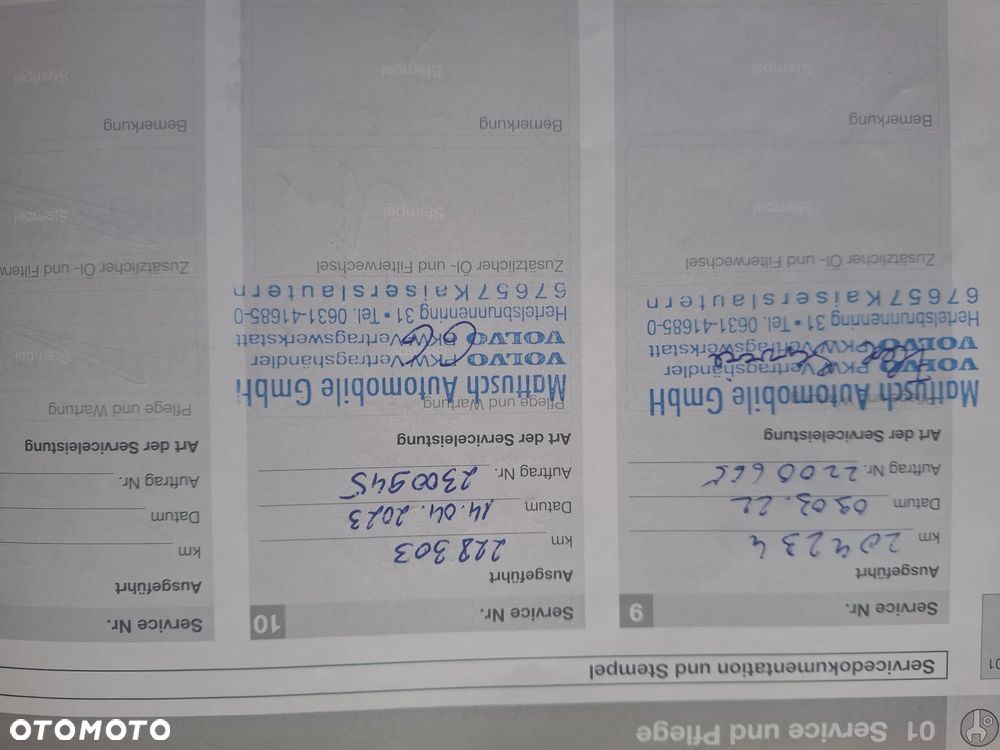 01 Service und Pflege
01
Servicedokumentation und Stempel
Service Nr. 9
Ausgeführt
km 204234
Datum 09.03.22
Auftrag Nr. 2200665
Art der Serviceleistung
Pflege und Wartung
Mattusch Automobile GmbH
VOLVO PKW Vertragshändler
VOLVO PKW Vertragswerkstatt
Hertelsbrunnenring 31 • Tel. 0631-41685-0
67657 Kaiserslautern
Zusätzlicher Öl- und Filterwechsel
Stempel
Bemerkung
Stempel
Service Nr. 10
Ausgeführt
km 228303
Datum 14.04.2023
Auftrag Nr. 2300945
Art der Serviceleistung
Pflege und Wartung
Mattusch Automobile GmbH
VOLVO PKW Vertragshändler
VOLVO PKW Vertragswerkstatt
Hertelsbrunnenring 31 • Tel. 0631-41685-0
67657 Kaiserslautern
Zusätzlicher Öl- und Filterwechsel
Stempel
Bemerkung
Stempel
Service Nr.
Ausgeführt
km
Datum
Auftrag Nr.
Art der Serviceleistung
Pflege und Wartung
Stempel
Zusätzlicher Öl- und Filterw
Stempel
Bemerkung
Stempel
OTOMOTO